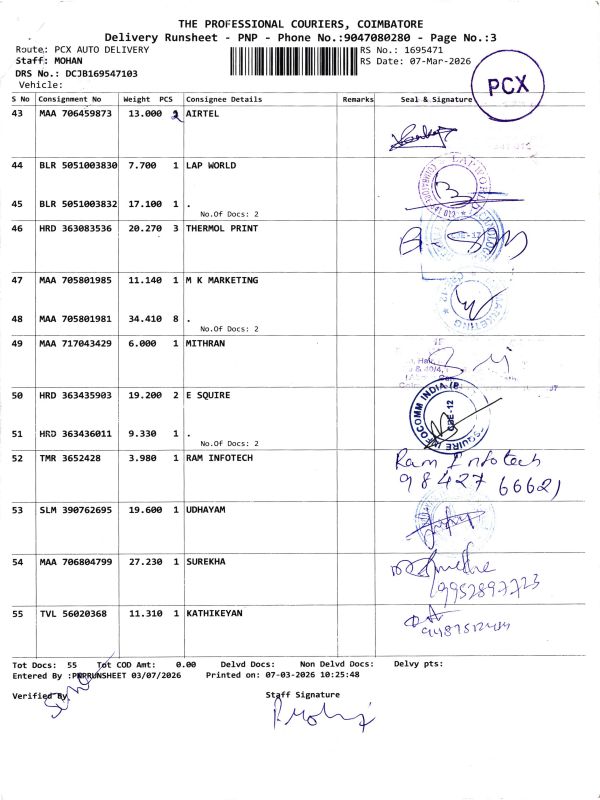 THE PROFESSIONAL COURIERS, COIMBATORE
Delivery Runsheet - PNP - Phone No.:9047080280 - Page No.:3
Route: PCX AUTO DELIVERY RS No.: 1695471
Staff: MOHAN RS Date: 07-Mar-2026
DRS No.: DCJB169547103
Vehicle:
PCX
S No Consignment No Weight PCS Consignee Details Remarks Seal & Signature
43 MAA 706459873 13.000 2 AIRTEL
44 BLR 5051003830 7.700 1 LAP WORLD
45 BLR 5051003832 17.100 1 .
No.Of Docs: 2
46 HRD 363083536 20.270 3 THERMOL PRINT
47 MAA 705801985 11.140 1 M K MARKETING
48 MAA 705801981 34.410 8 .
No.Of Docs: 2
49 MAA 717043429 6.000 1 MITHRAN
50 HRD 363435903 19.200 2 E SQUIRE
51 HRD 363436011 9.330 1 .
No.Of Docs: 2
52 TMR 3652428 3.980 1 RAM INFOTECH Ram Infotech
98427 66621
53 SLM 390762695 19.600 1 UDHAYAM
54 MAA 706804799 27.230 1 SUREKHA
9952897723
55 TVL 56020368 11.310 1 KATHIKEYAN
Tot Docs: 55 Tot COD Amt: 0.00 Delvd Docs: Non Delvd Docs: Delvy pts:
Entered By :PNPRUNSHEET 03/07/2026 Printed on: 07-03-2026 10:25:48
Verified By Staff Signature